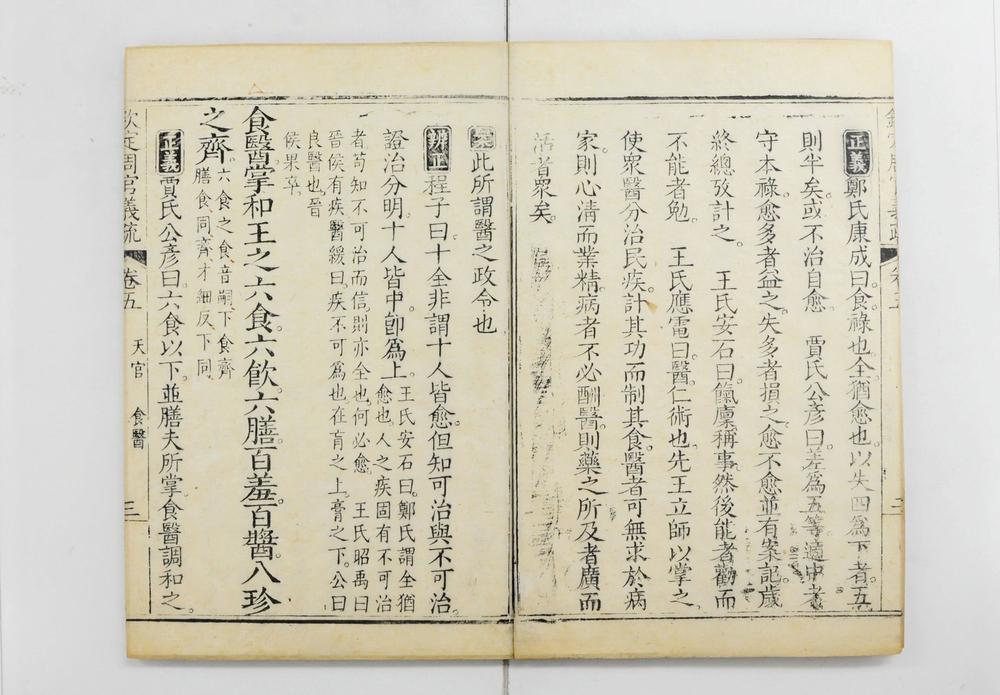 正義鄭氏康成曰食祿也全猶愈也以失四爲下者五
則半矣或不治自愈　賈氏公彦曰差爲五等適中者
守本祿愈多者益之失多者損之愈不愈並有案記歲
終總攷計之　王氏安石曰餼廩稱事然後能者勸而
不能者勉　王氏應電曰醫仁術也先王立師以掌之
使衆醫分治民疾計其功而制其食醫者可無求於病
家則心清而業精病者不必酬醫則藥之所及者廣而
活者衆矣
案此所謂醫之政令也
辨正程子曰十全非謂十人皆愈但知可治與不可治
證治分明十人皆中卽爲上王氏安石曰鄭氏謂全猶
愈也人之疾固有不可治
者苟知不可治而信則亦全也何必愈　王氏昭禹曰
晉侯有疾醫緩曰疾不可爲也在肓之上膏之下公曰
良醫也晉
侯果卒
食醫掌和王之六食六飲六膳百羞百醬八珍
之齊六食之食音嗣下食齊
膳食同齊才細反下同
正義賈氏公彦曰六食以下並膳夫所掌食醫調和之
欽定周官義疏　卷五　天官　食醫　三